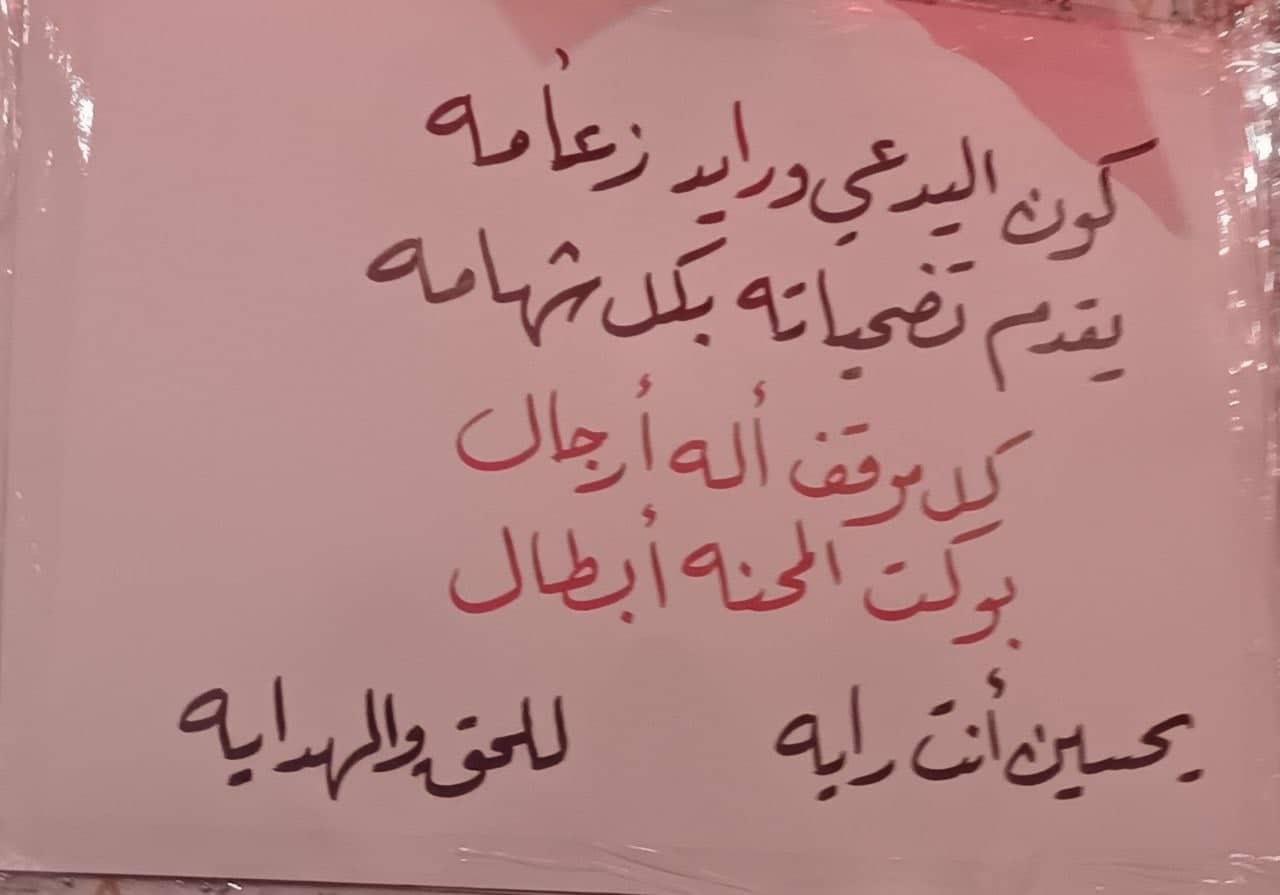 كون اليدعي ورايد زعأمه
يقدم تضحياته بكل شهامه
كل موقف أله أرجال
بوكت المحنه أبطال
يحسين أنت رايه للحق والهدايه